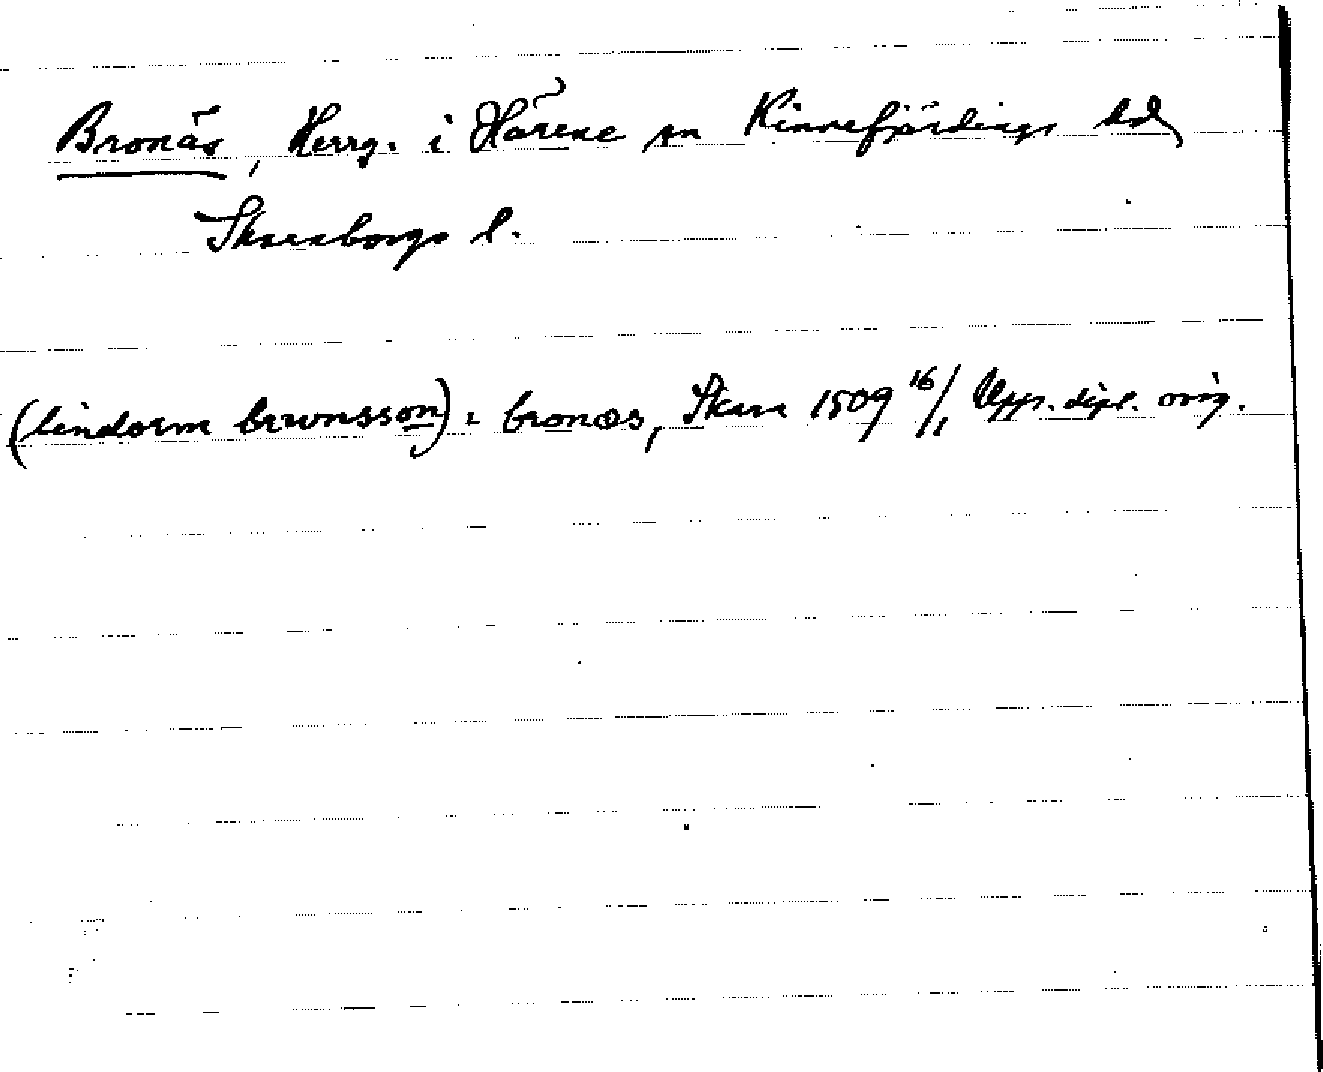 Bronäs, Herrg. i Härene sn Kinnefjärdings hd
Skaraborgs l.
(lindorm brwnsson) i bronæs, Skara 1509 16/1 Upps. dipl. orig.